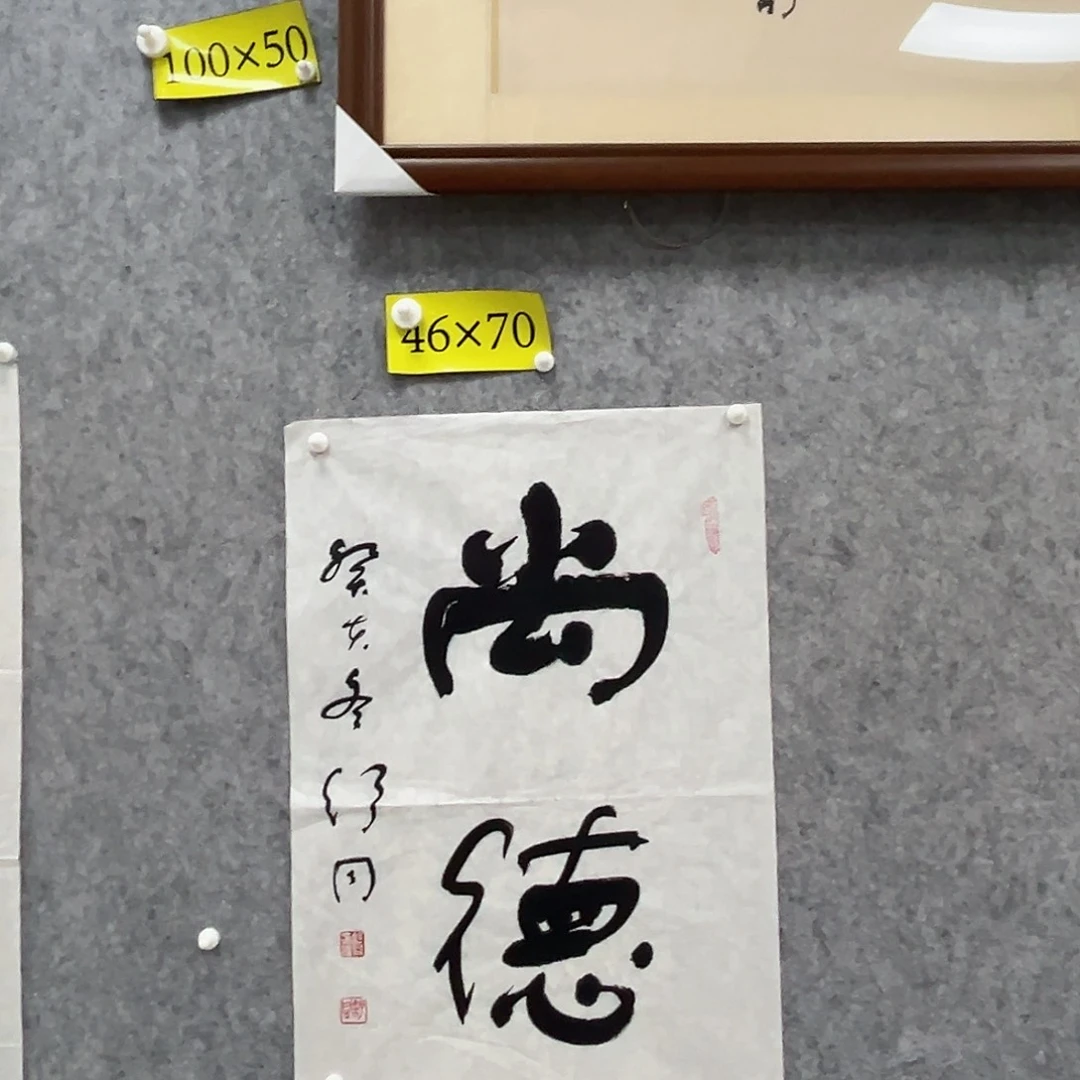 100×50
46×70
尚德
癸亥冬